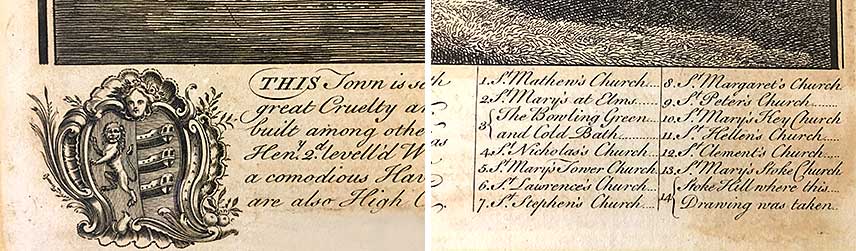 THIS Town is s
great Cruelty a
built among othe
Henʸ. 2ᵈ. levell'd W
a comodious Hav
are also High C
as
1. Sᵗ. Mathew's Church
2. Sᵗ. Mary's at Elms
3 { The Bowling Green
and Cold Bath
4. Sᵗ. Nicholas's Church
5. Sᵗ. Mary's Tower Church
6. Sᵗ. Lawrence's Church
7. Sᵗ. Stephen's Church
8. Sᵗ. Margaret's Church
9. Sᵗ. Peter's Church
10. Sᵗ. Mary's Key Church
11. Sᵗ. Hellen's Church
12. Sᵗ. Clement's Church
13. Sᵗ. Mary's Stoke Church
14 { Stoke Hill where this
Drawing was taken